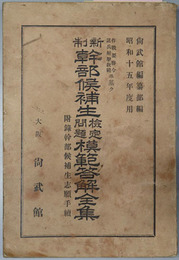 尚武館編纂部編
昭和十五年度用
新制
幹部候補生檢定問題模範答解全集
附錄幹部候補生志願手續
大阪 尚武館